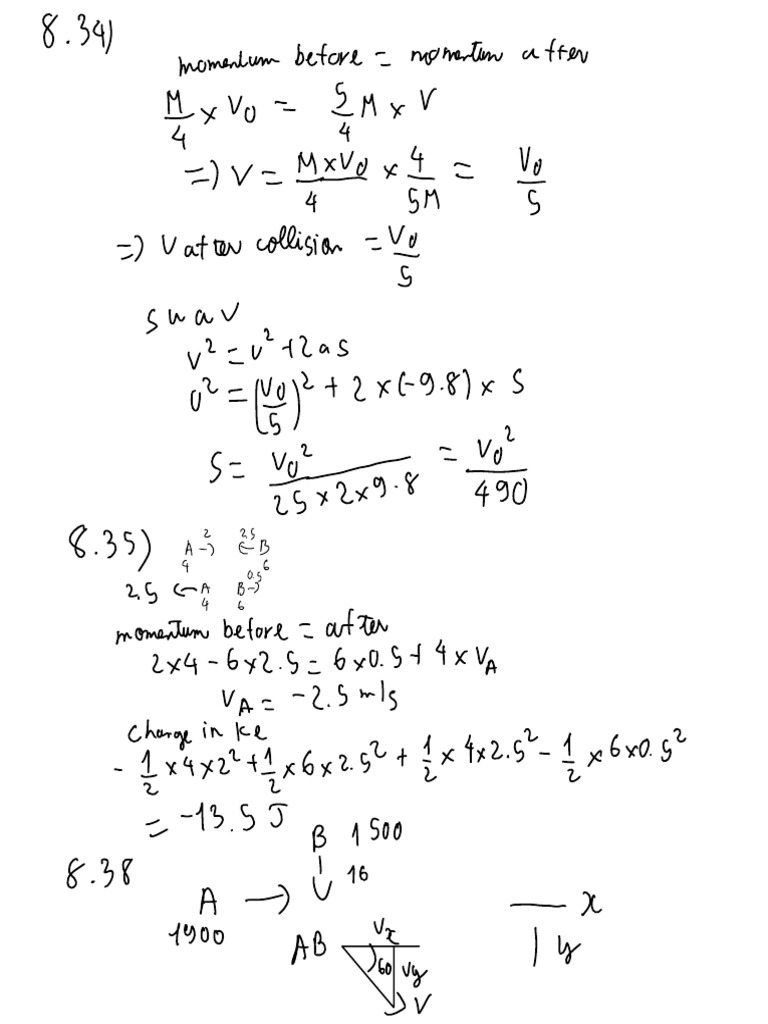 8.34)
momentum before = momentum after
M/4 × V0 = 5/4 M × V
=) V = M×V0/4 × 4/5M = V0/5
=) V after collision = V0/5
suav
v² = u² + 2as
0² = (V0/5)² + 2 × (-9.8) × S
S = V0²/25×2×9.8 = V0²/490
8.35) A -) 2 2.5 (- B
4 6
2.5 (- A B -) 0.5
4 6
momentum before = after
2×4 - 6×2.5 = 6×0.5 + 4×VA
VA = -2.5 m/s
Change in ke
- 1/2 ×4×2² + 1/2 ×6×2.5² + 1/2 × 4×2.5² - 1/2 ×6×0.5²
= -13.5 J
8.38
B 1500
16
A
1900
x
y
AB Vx
60 Vy
V